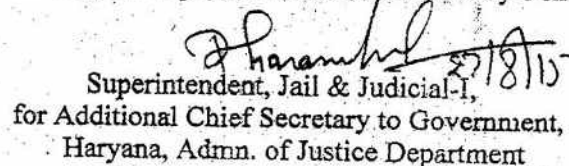 27/8/15
Superintendent, Jail & Judicial-I,
for Additional Chief Secretary to Government,
Haryana, Admn. of Justice Department